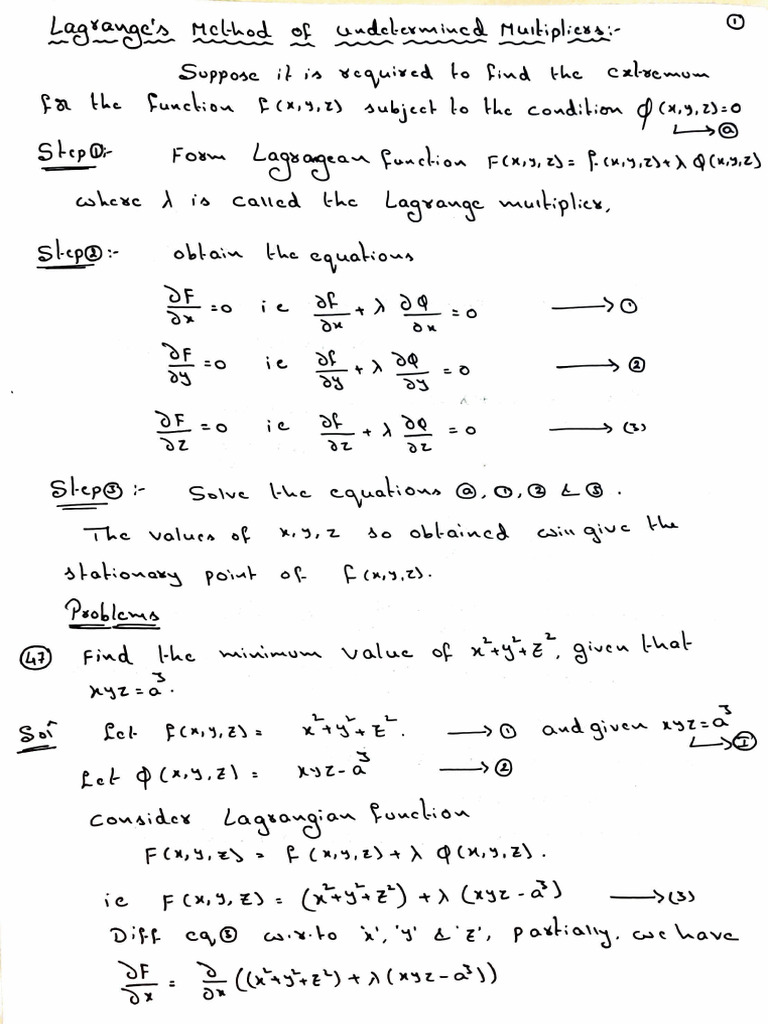 ①
Lagrange's Method of undetermined Multipliers:-
Suppose it is required to find the extremum
for the function f(x,y,z) subject to the condition φ(x,y,z)=0
↳ⓐ
Step①:- Form Lagragean function F(x,y,z) = f(x,y,z) + λ φ(x,y,z)
where λ is called the Lagrange multiplier,
Step②:- obtain the equations
∂F/∂x = 0 ie ∂f/∂x + λ ∂φ/∂x = 0 → ①
∂F/∂y = 0 ie ∂f/∂y + λ ∂φ/∂y = 0 → ②
∂F/∂z = 0 ie ∂f/∂z + λ ∂φ/∂z = 0 → (3)
Step③:- Solve the equations ⓐ, ①, ② & ③.
The values of x, y, z so obtained will give the
stationary point of f(x,y,z).
Problems
㊼ Find the minimum value of x²+y²+z², given that
xyz = a³.
Sol Let f(x,y,z) = x²+y²+z². → ① and given xyz=a³
↳Ⓘ
Let φ(x,y,z) = xyz-a³ → ②
Consider Lagrangian function
F(x,y,z) = f(x,y,z) + λ φ(x,y,z).
ie F(x,y,z) = (x²+y²+z²) + λ (xyz-a³) → (3)
Diff eq③ w.r.to 'x', 'y' & 'z', partially, we have
∂F/∂x = ∂/∂x ((x²+y²+z²) + λ (xyz-a³))